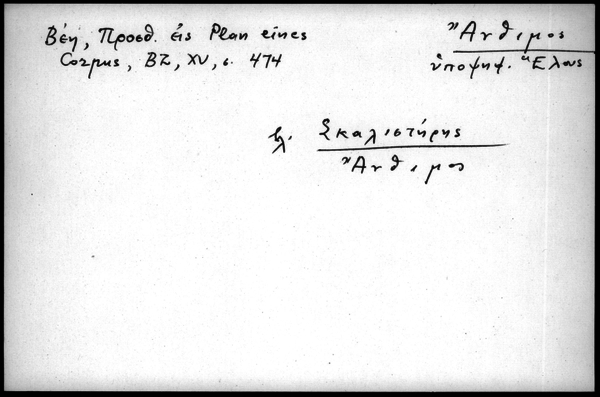 Βέη, Προσθ. εἰς Plan eines
Corpus, BZ, XV, σ. 474
Ἄνθιμος
ὑποψηφ. Ἕλους
βλ. Σκαλιστήρης
Ἄνθιμος